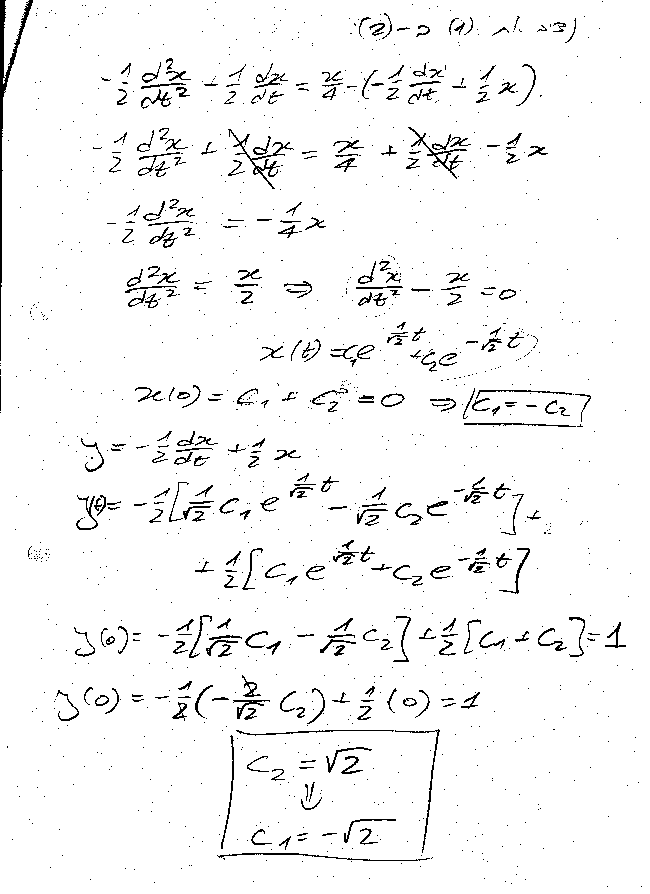 (2) → (1)
-1/2 d²x/dt² + 1/2 dx/dt = x/4 - (-1/2 dx/dt + 1/2 x)
-1/2 d²x/dt² + 1/2 dx/dt = x/4 + 1/2 dx/dt - 1/2 x
-1/2 d²x/dt² = -1/4 x
d²x/dt² = x/2 ⇒ d²x/dt² - x/2 = 0
x(t) = c₁e^(1/√2 t) + c₂e^(-1/√2 t)
x(0) = C₁ + C₂ = 0 ⇒ C₁ = -C₂
y = -1/2 dx/dt + 1/2 x
y(t) = -1/2 [1/√2 C₁ e^(1/√2 t) - 1/√2 C₂ e^(-1/√2 t)] +
+ 1/2 [C₁ e^(1/√2 t) + C₂ e^(-1/√2 t)]
y(0) = -1/2 [1/√2 C₁ - 1/√2 C₂] + 1/2 [C₁ + C₂] = 1
y(0) = -1/2 (-2/√2 C₂) + 1/2 (0) = 1
C₂ = √2
⇓
C₁ = -√2